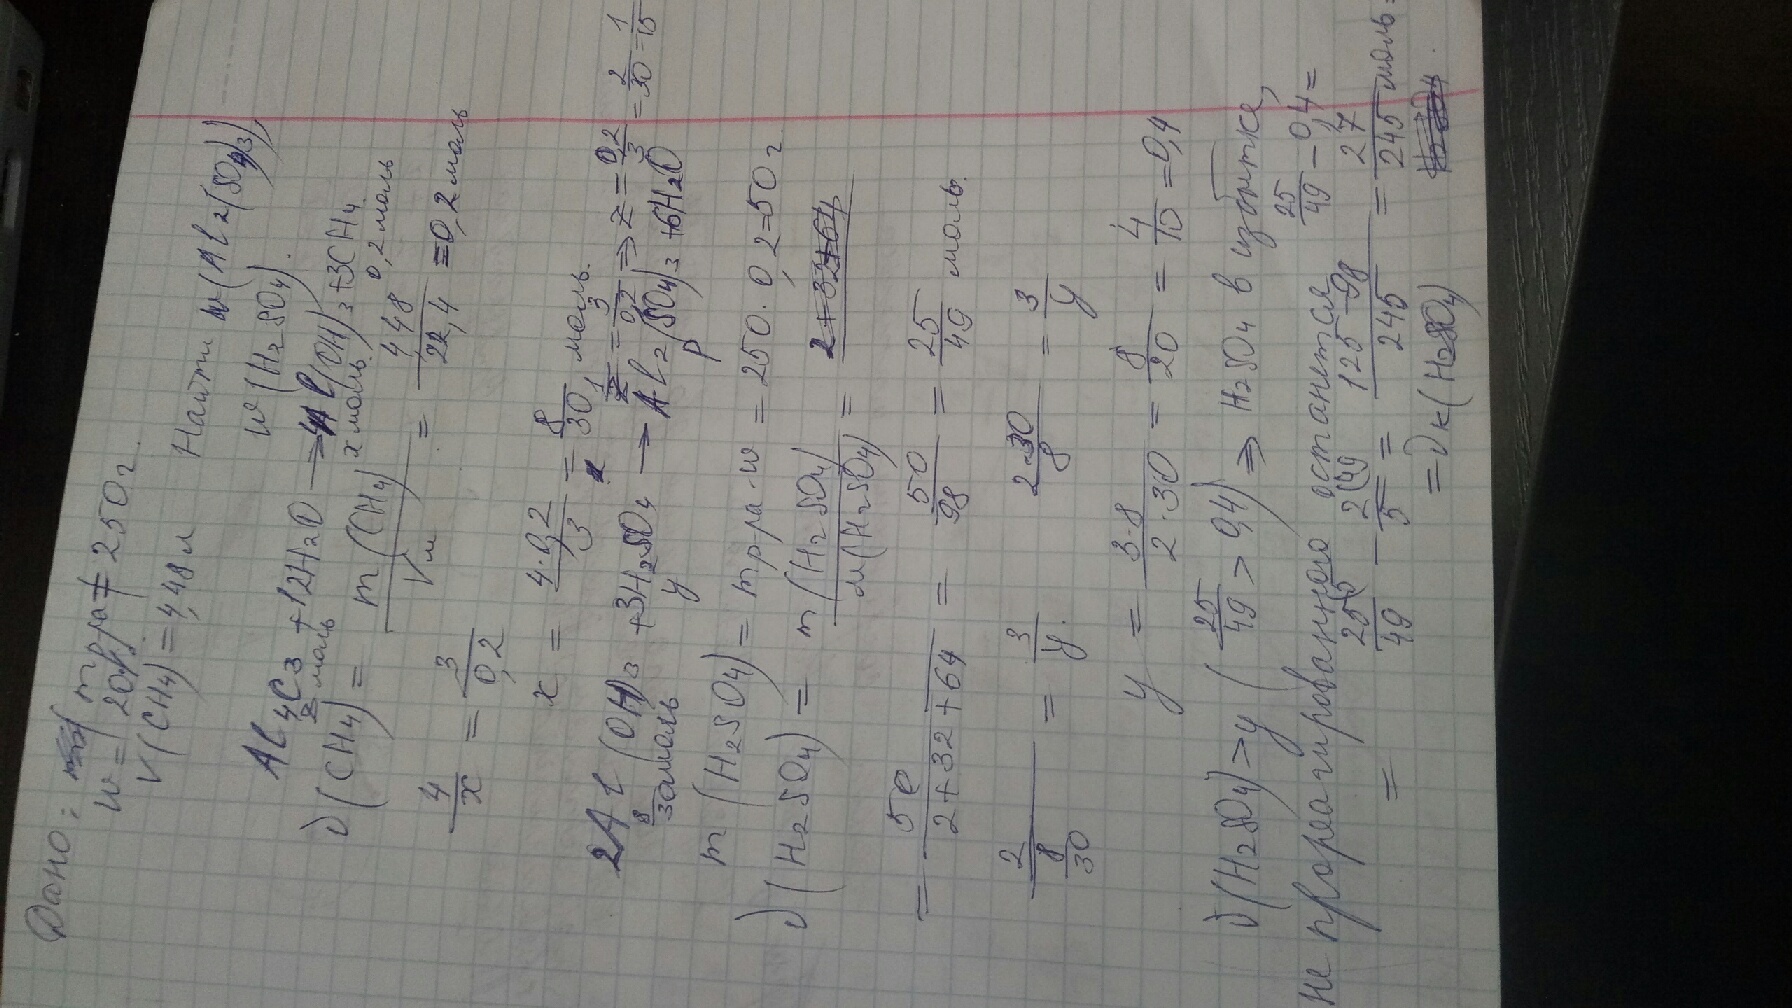 Дано: m р-ра = 250г.
w = 20%
V(CH4) = 4,48л
Найти w(Al2(SO4)3),
w(H2SO4).
Al4C3 + 12H2O → 4Al(OH)3 + 3CH4
z моль x моль 0,2 моль
ν(CH4) = m(CH4)/Vм = 4 48/22,4 = 0,2 моль
4/x = 3/0,2
x = 4·0,2/3 = 8/30 моль.
1/z = 3/0,2 => z = 0,2/3 = 2/30 = 1/15
2Al(OH)3 + 3H2SO4 → Al2(SO4)3 + 6H2O
8/30 моль y p
m(H2SO4) = m р-ра · w = 250 · 0,2 = 50г
ν(H2SO4) = m(H2SO4)/M(H2SO4) =
= 50/2+32+64 = 50/98 = 25/49 моль.
2/8/30 = 3/y. 2·30/8 = 3/y
y = 3·8/2·30 = 8/20 = 4/10 = 0,4
ν(H2SO4) > y (25/49 > 0,4) => H2SO4 в избытке,
Не прореагированного останется 25/49 - 0,4 =
= 25(5/49 - 2(49/5 = 125-98/245 = 27/245 моль =
= νк(H2SO4)